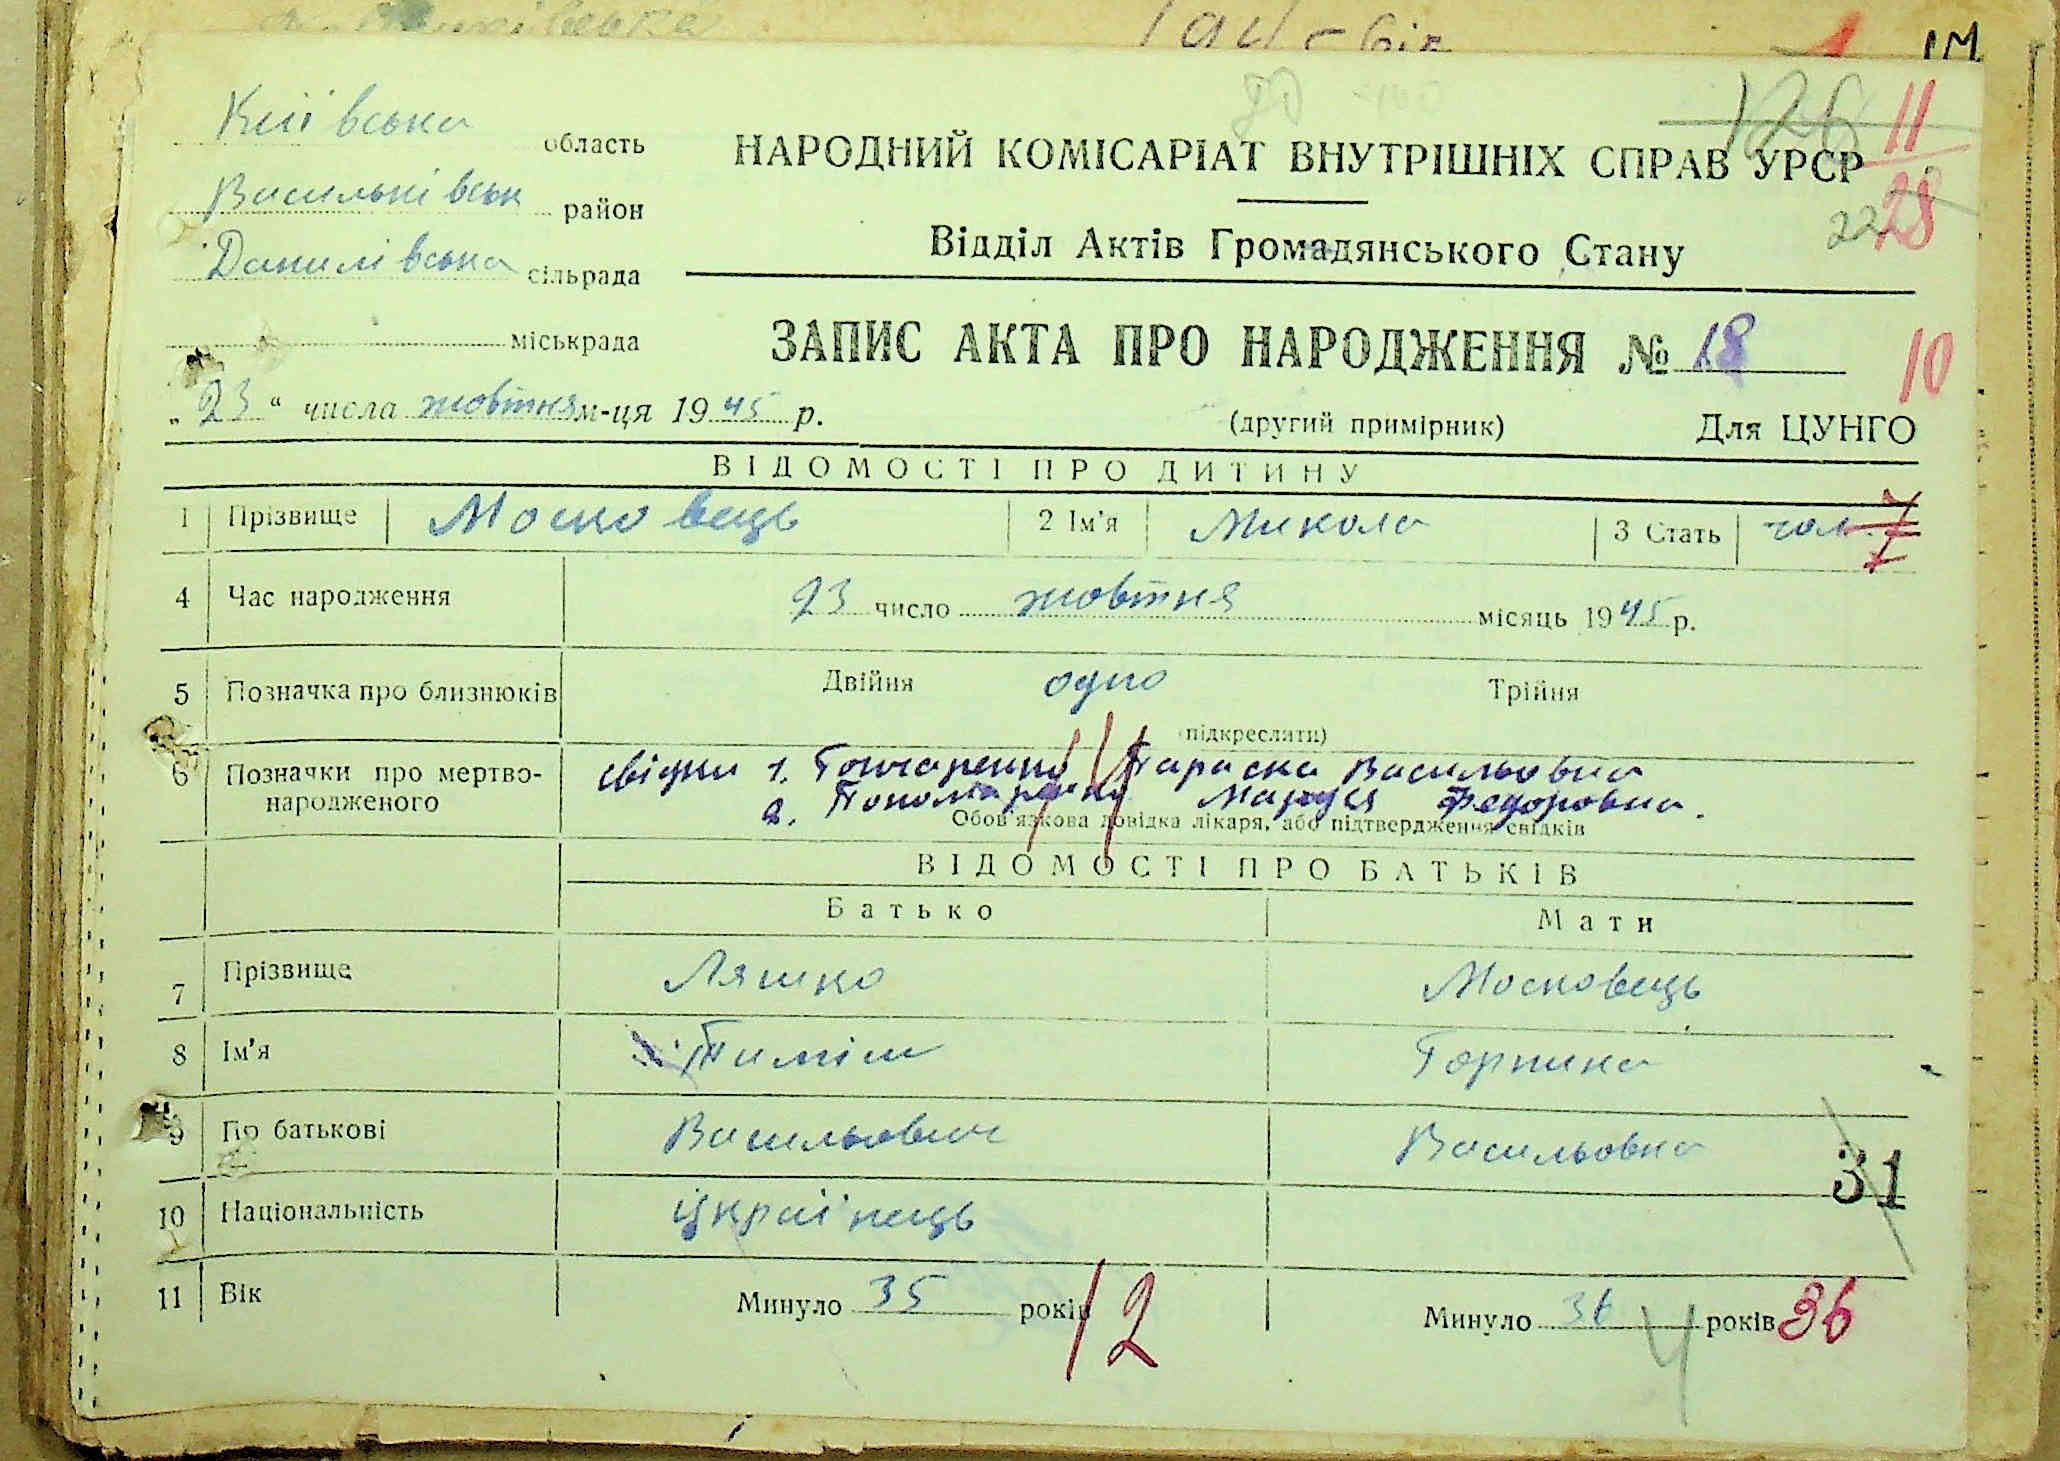 Київська область
Васильківськ район
Данилівська сільрада
міськрада
126
11
28
22
НАРОДНИЙ КОМІСАРІАТ ВНУТРІШНІХ СПРАВ УРСР
Відділ Актів Громадянського Стану
ЗАПИС АКТА ПРО НАРОДЖЕННЯ № 18
10
„23“ числа жовтня м-ця 1945 р.
(другий примірник) Для ЦУНГО
ВІДОМОСТІ ПРО ДИТИНУ
1 Прізвище Московець 2 Ім'я Микола 3 Стать чол.
4 Час народження 23 число жовтня місяць 1945 р.
5 Позначка про близнюків Двійня одно Трійня
(підкреслити)
6 Позначки про мертво-
народженого
свідки 1. Гончаренко Параска Васильовна
2. Пономаренко Маруся Федоровна.
Обов'язкова довідка лікаря, або підтвердження свідків
ВІДОМОСТІ ПРО БАТЬКІВ
Батько Мати
7 Прізвище Ляшко Московець
8 Ім'я Тиміш Горпина
9 По батькові Васильович Васильовна
31
10 Національність українець
11 Вік Минуло 35 років 12 Минуло 36 років 36
4